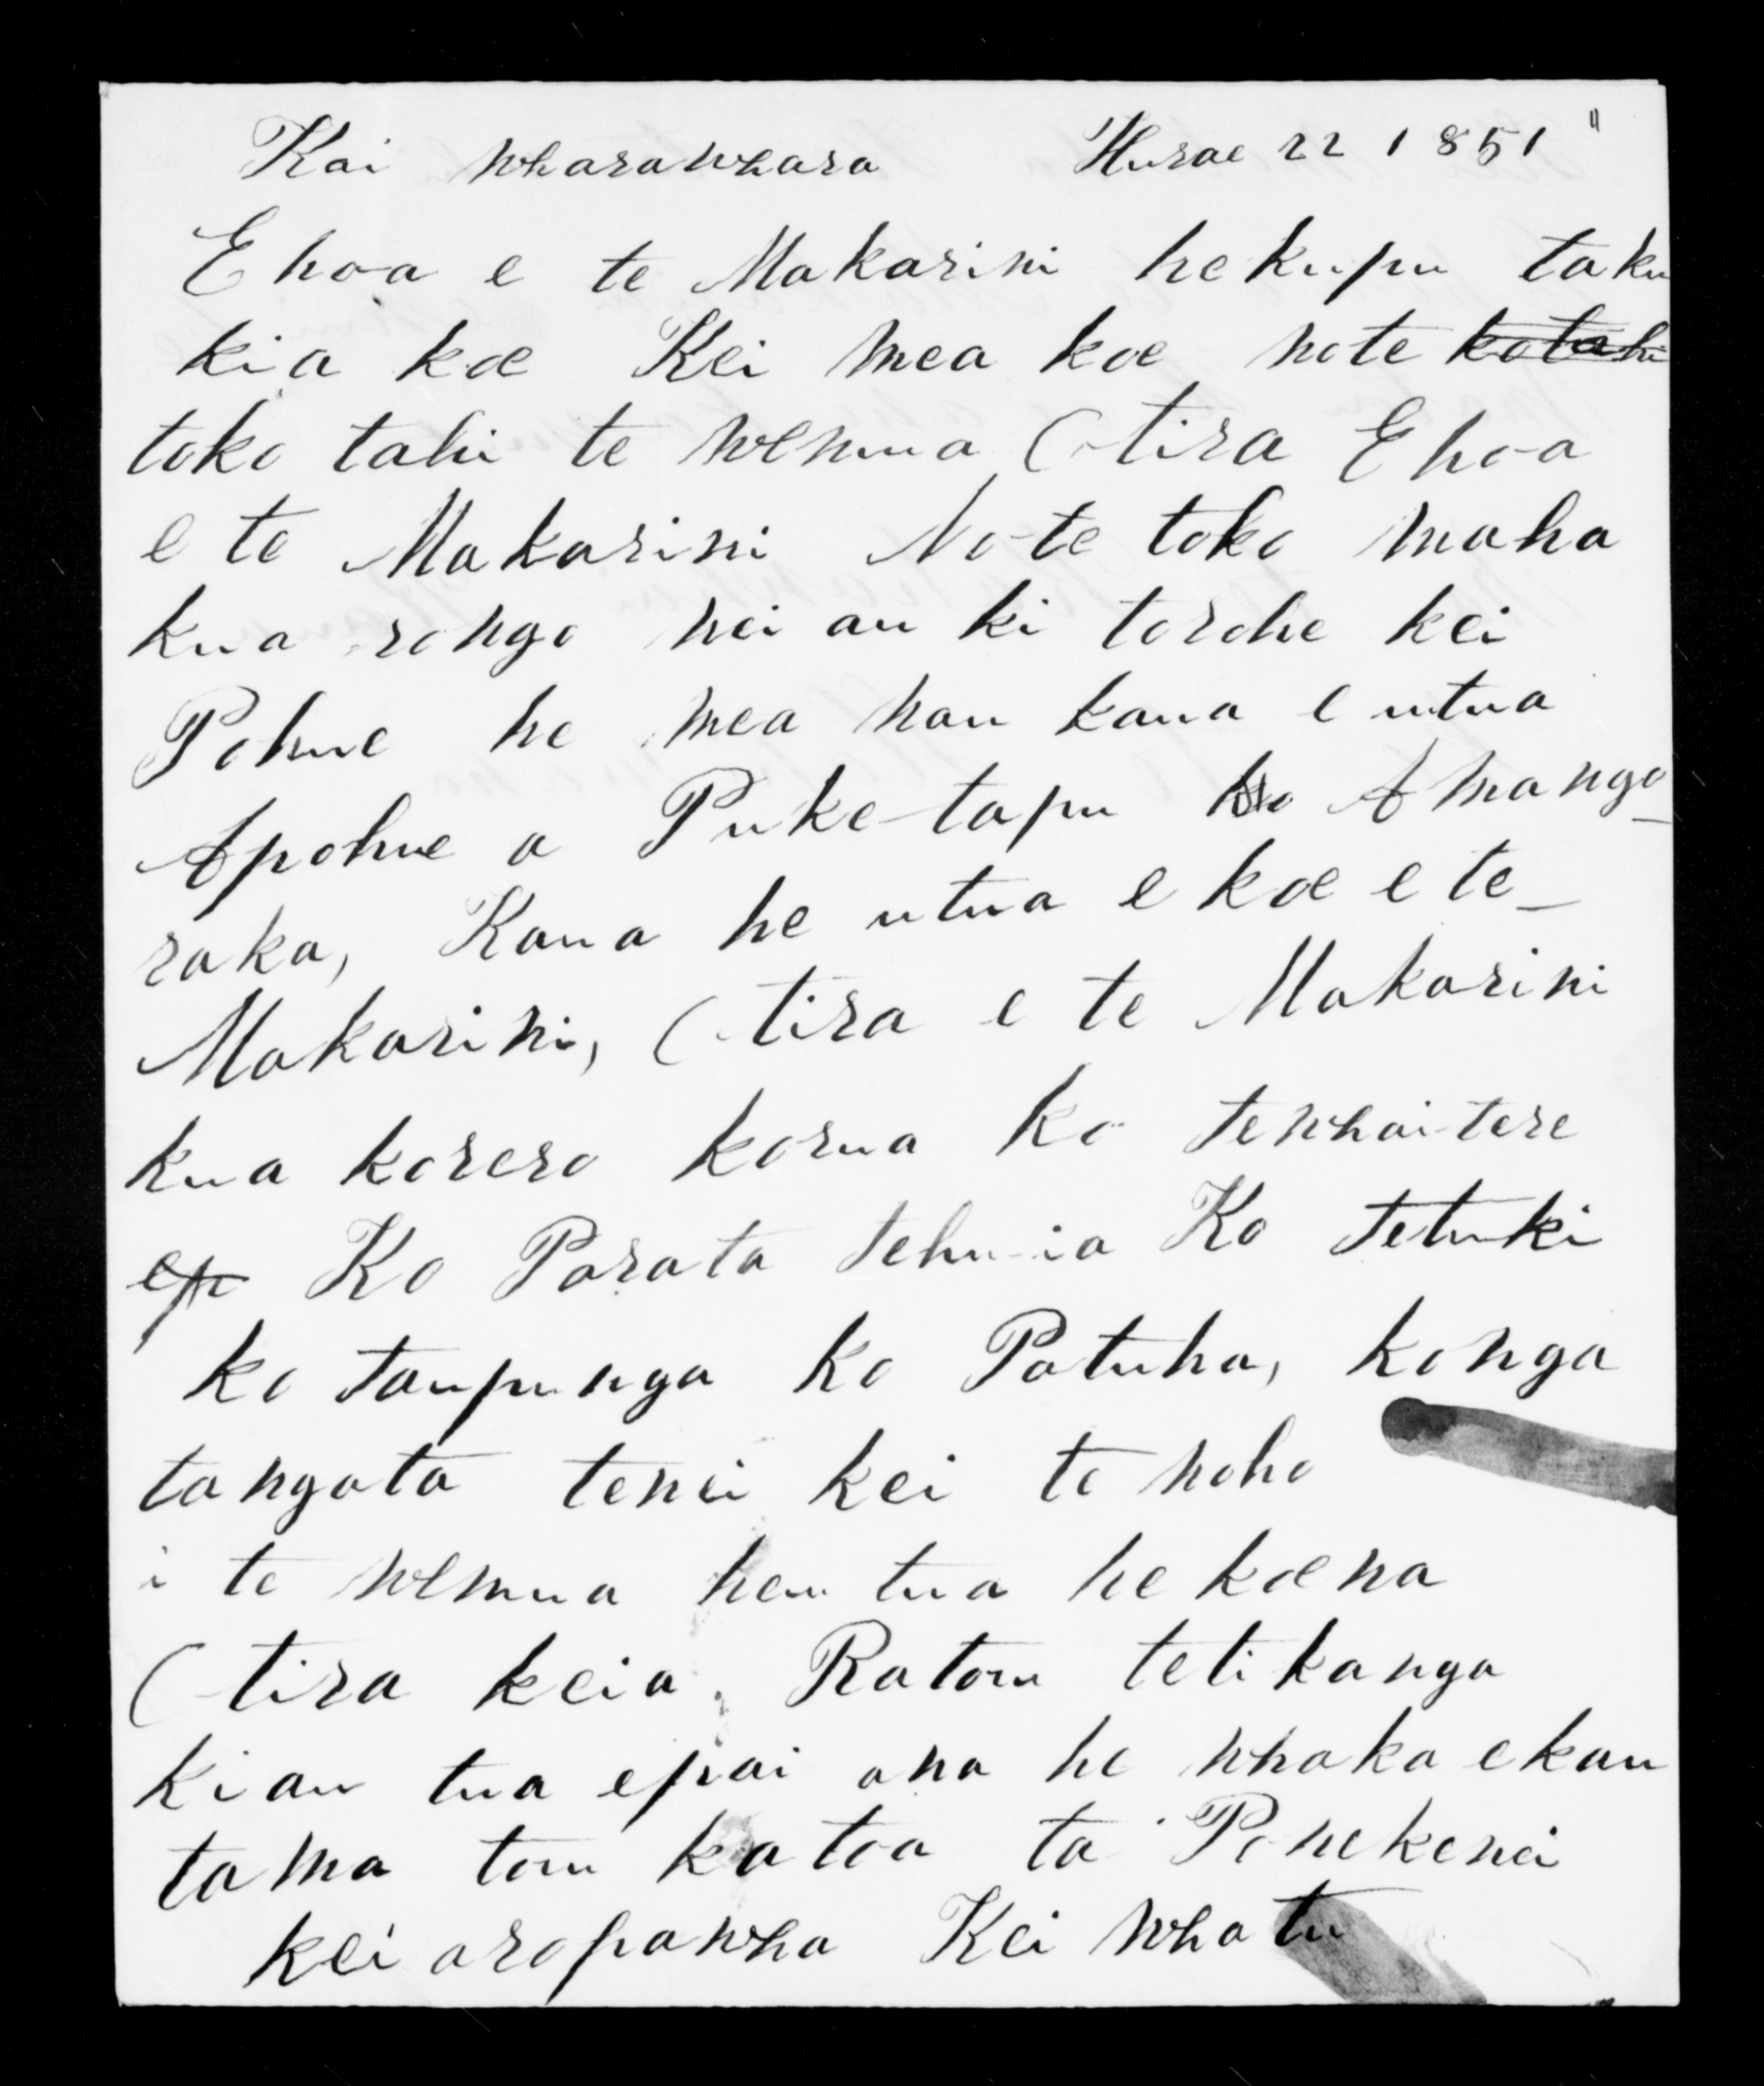 Kai wharawhara Hurae 22 1851 "
E hoa e te Makarini he kupu taku
kia koe Kei mea koe note kotahi
toko tahi te wenua (Otira E hoa
e te Makarini No te toko maha
kua rongo nei au ki torohe kei
Pohue he mea nau kaua e utua
A pohue a Puke-tapu ko A mango_
raka, Kaua he utua e koe e te_
Makarini, (Otira e te Makarini
kua korero korua ko tewhai-tere
ep Ko Porata tehu-ia Ko Tetuki
ko taupunga ko Potuha, ko nga
tangata tenei kei te noho
i te wenua hau tua he koe na
(Otira keia Ratou te tikanga
Ki au tua e pai ana he whaka e kau
ta ma tou katoa ta Ponekenei
kei aropawha Kei whatu